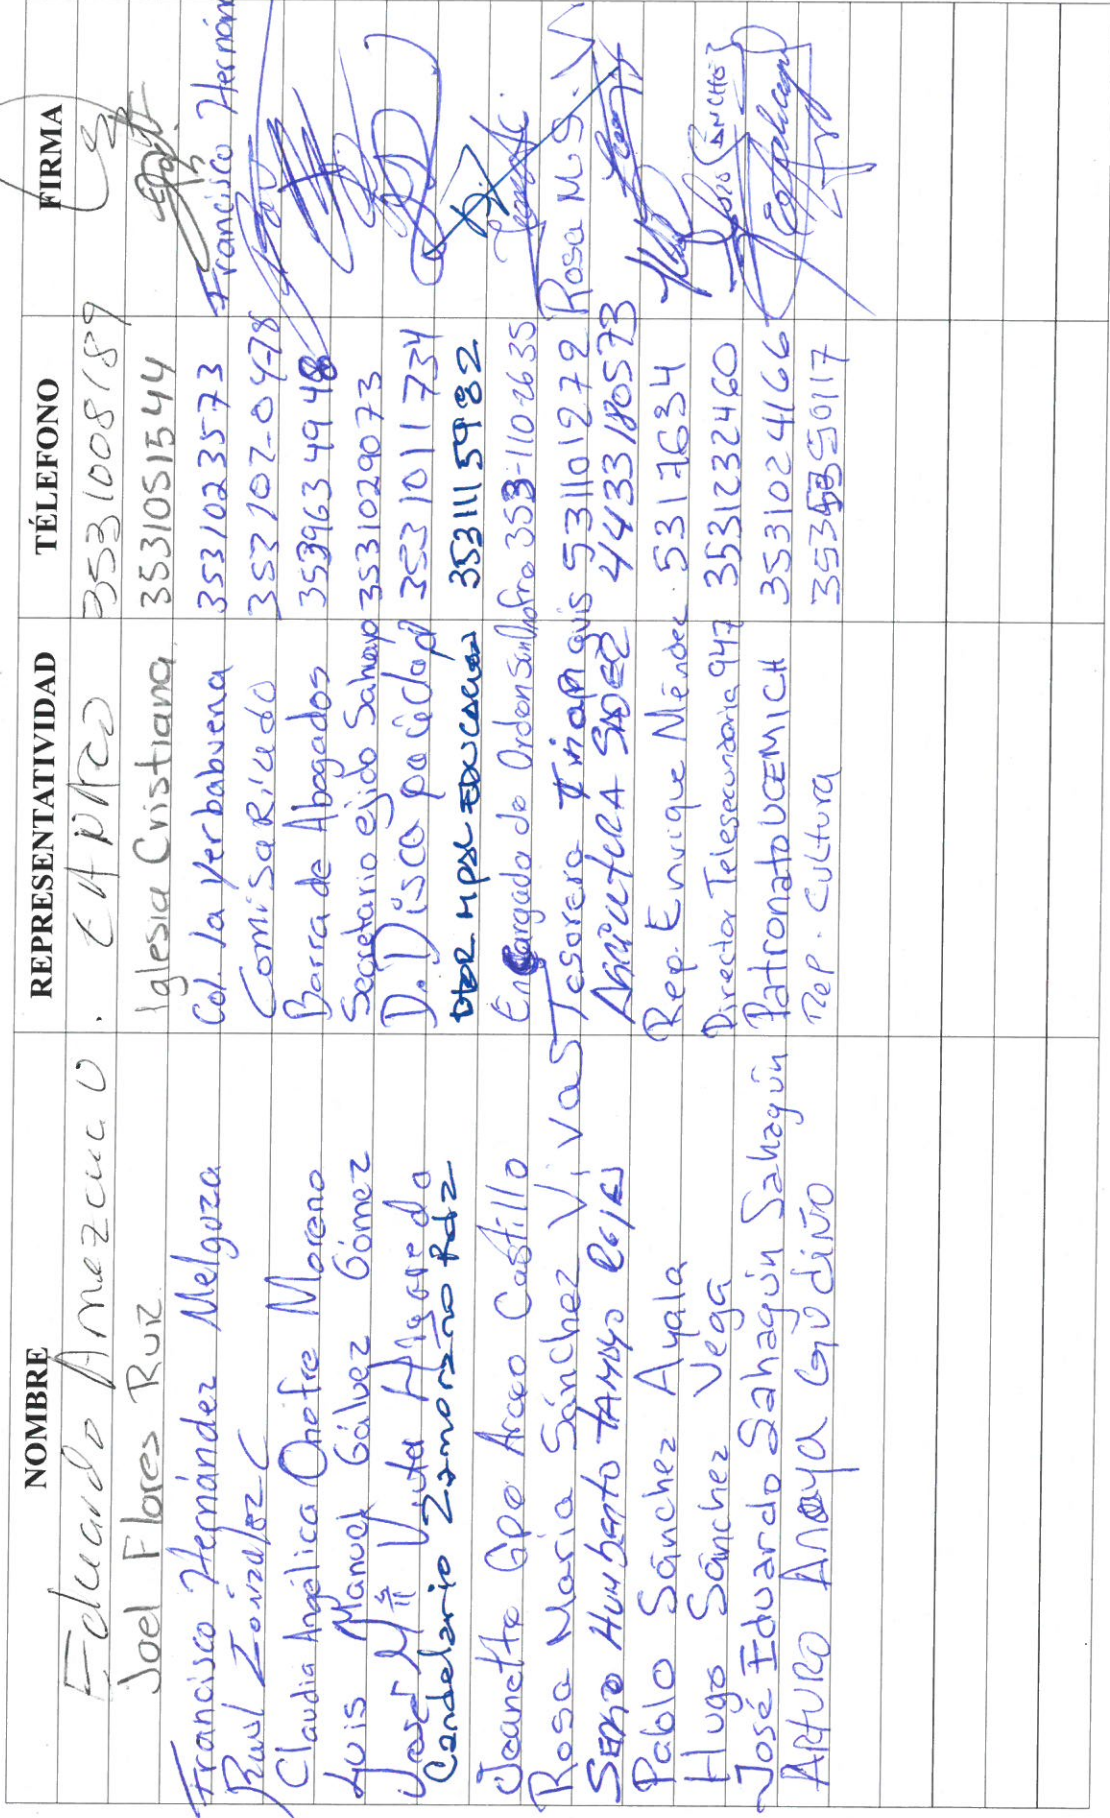 NOMBRE REPRESENTATIVIDAD TÉLEFONO FIRMA
Eduardo Amezcua O 3531008189
Joel Flores Ruiz Iglesia Cristiana 3531051544
Francisco Hernández Melgoza Col. la Yerbabuena 3531023573 Francisco Hernán
Raul González C Comisariado 353102-04-78
Claudia Angélica Onofre Moreno Barra de Abogados 3539634948
Luis Manuel Gálvez Gómez Secretario ejido Sahuayo 3531029073
José Mª Higareda D. Discapacidad 3531011734
Candelario Zamorano Rdz DTOR MPAL EDUCACIÓN 3531115982
Jeanette Gpe Arceo Castillo Encargada de Orden San Onofre 353-110-2635
Rosa María Sánchez Vivas Tesorera 531101279 Rosa M S. V
Sergio Humberto TAMAYO AGRICULTURA SADER 4433180573
Pablo Sánchez Ayala Rep. Enrique Méndez 5317634
Hugo Sánchez Vega Director Telesecundaria 947 3531232460 SÁNCHEZ
José Eduardo Sahagún Sahagún Patronato UCEMICH 3531024166
ARTURO ANAYA GUDIÑO Rep. Cultura